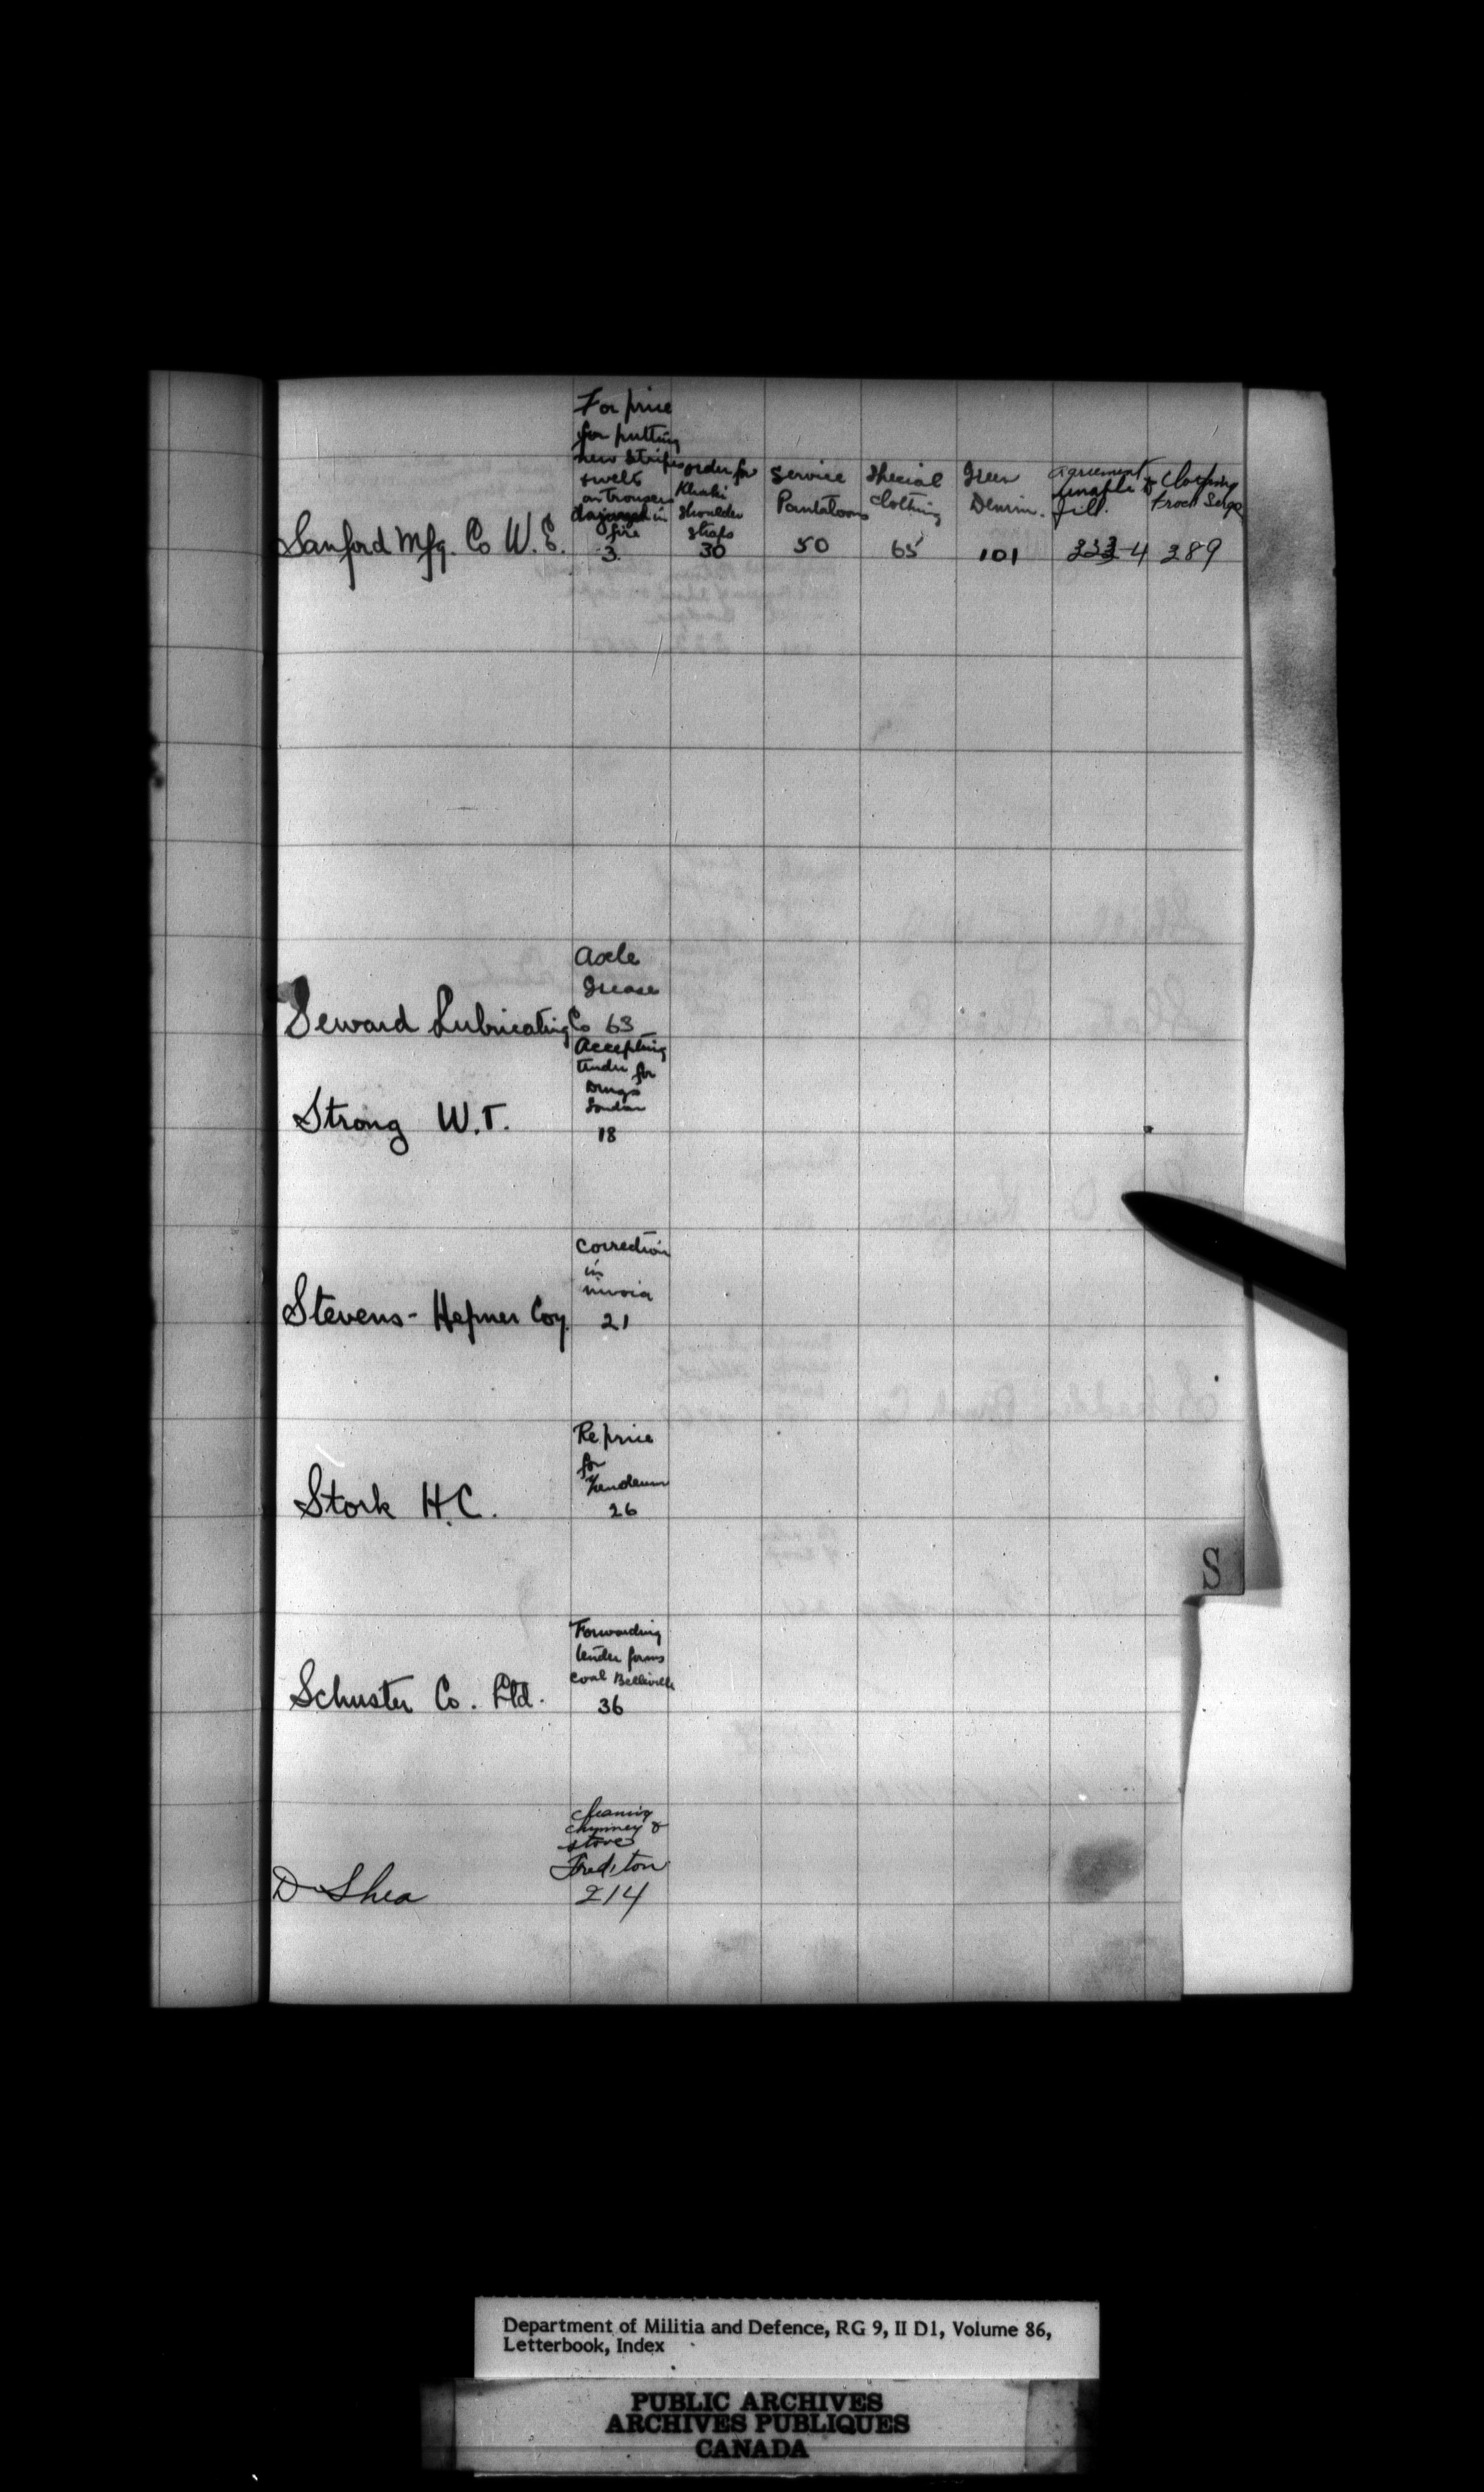 For price
for putting
new Stripes
swelts
on trousers
damaged in
fire
3.
order for
Khaki
Shoulder
Straps
30
Service
Pantaloons
50
Special
Clothing
65
Green
Denim.
101
agreement
unable to
fill.
333-4
Clothing
Frock Serge
389
Sanford Mfg. Co W. E.
Axle
Grease
Seward Lubricating Co 63
Accepting
tender for
Drugs
London
Strong W.T.
18
Correction
in
invoice
Stevens-Hepner Coy. 21
Re price
for
Stork H.C.
26
Forwarding
tender forms
coal Belleville
Schuster Co. Ltd.
36
cleaning
chymney &
stove
Fred'ton
D Shea
214
S
Department of Militia and Defence, RG 9, II D1, Volume 86,
Letterbook, Index
PUBLIC ARCHIVES
ARCHIVES PUBLIQUES
CANADA